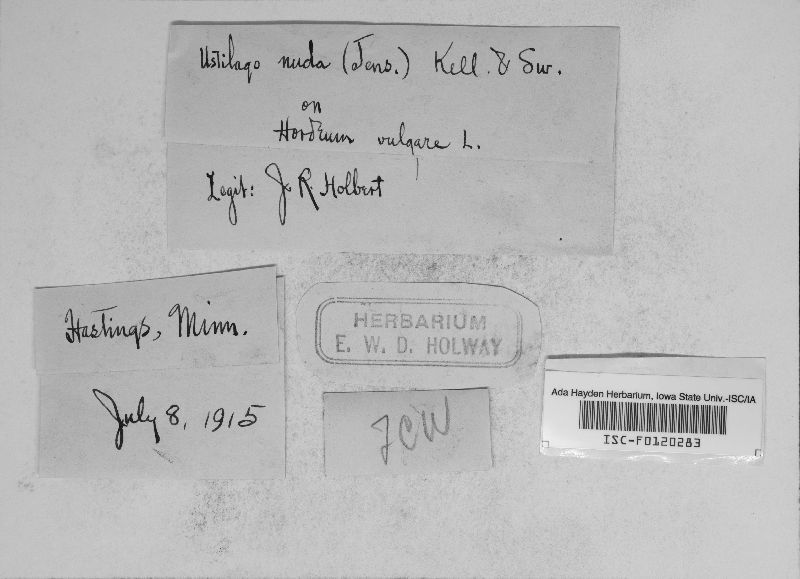 Ustilago nuda (Jens.) Kell. & Sw.
on
Hordeum vulgare L.
Legit: J R Holbert
Hastings, Minn.
July 8, 1915
HERBARIUM
E. W. D. HOLWAY
FCW
Ada Hayden Herbarium, Iowa State Univ.-ISC/IA
ISC-F0120283